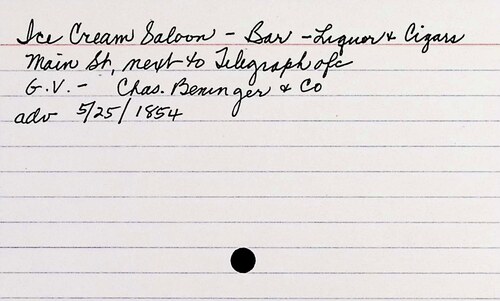 Ice Cream Saloon - Bar - Liquor & Cigars
Main St, next to Telegraph ofc
G.V. - Chas. Beninger & Co
adv 5/25/1854